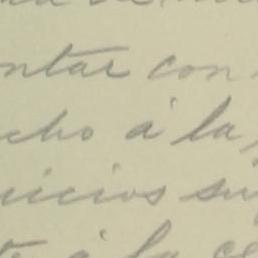 ntar con
cho á la
icios su
á la ce